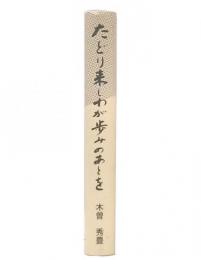 たどり来しわが歩みのあとを
木曽 秀豊